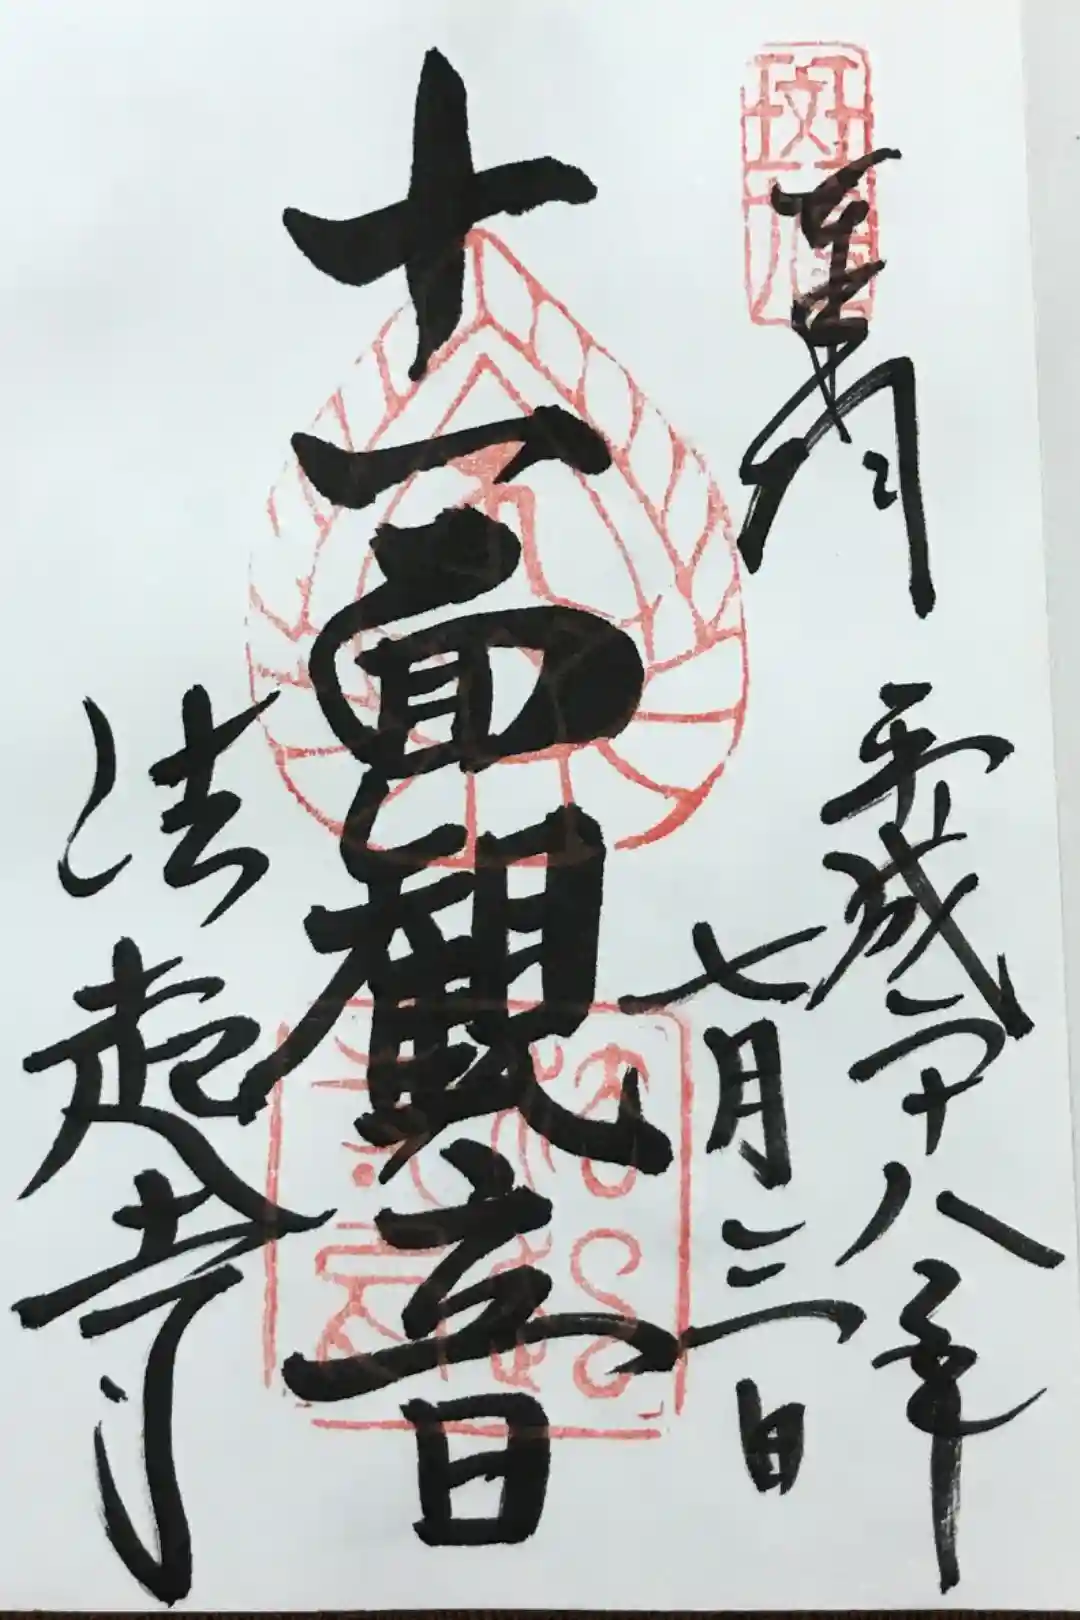 奉拝
平成二十八年
七月三日
十一面観音
法起寺
斑鳩